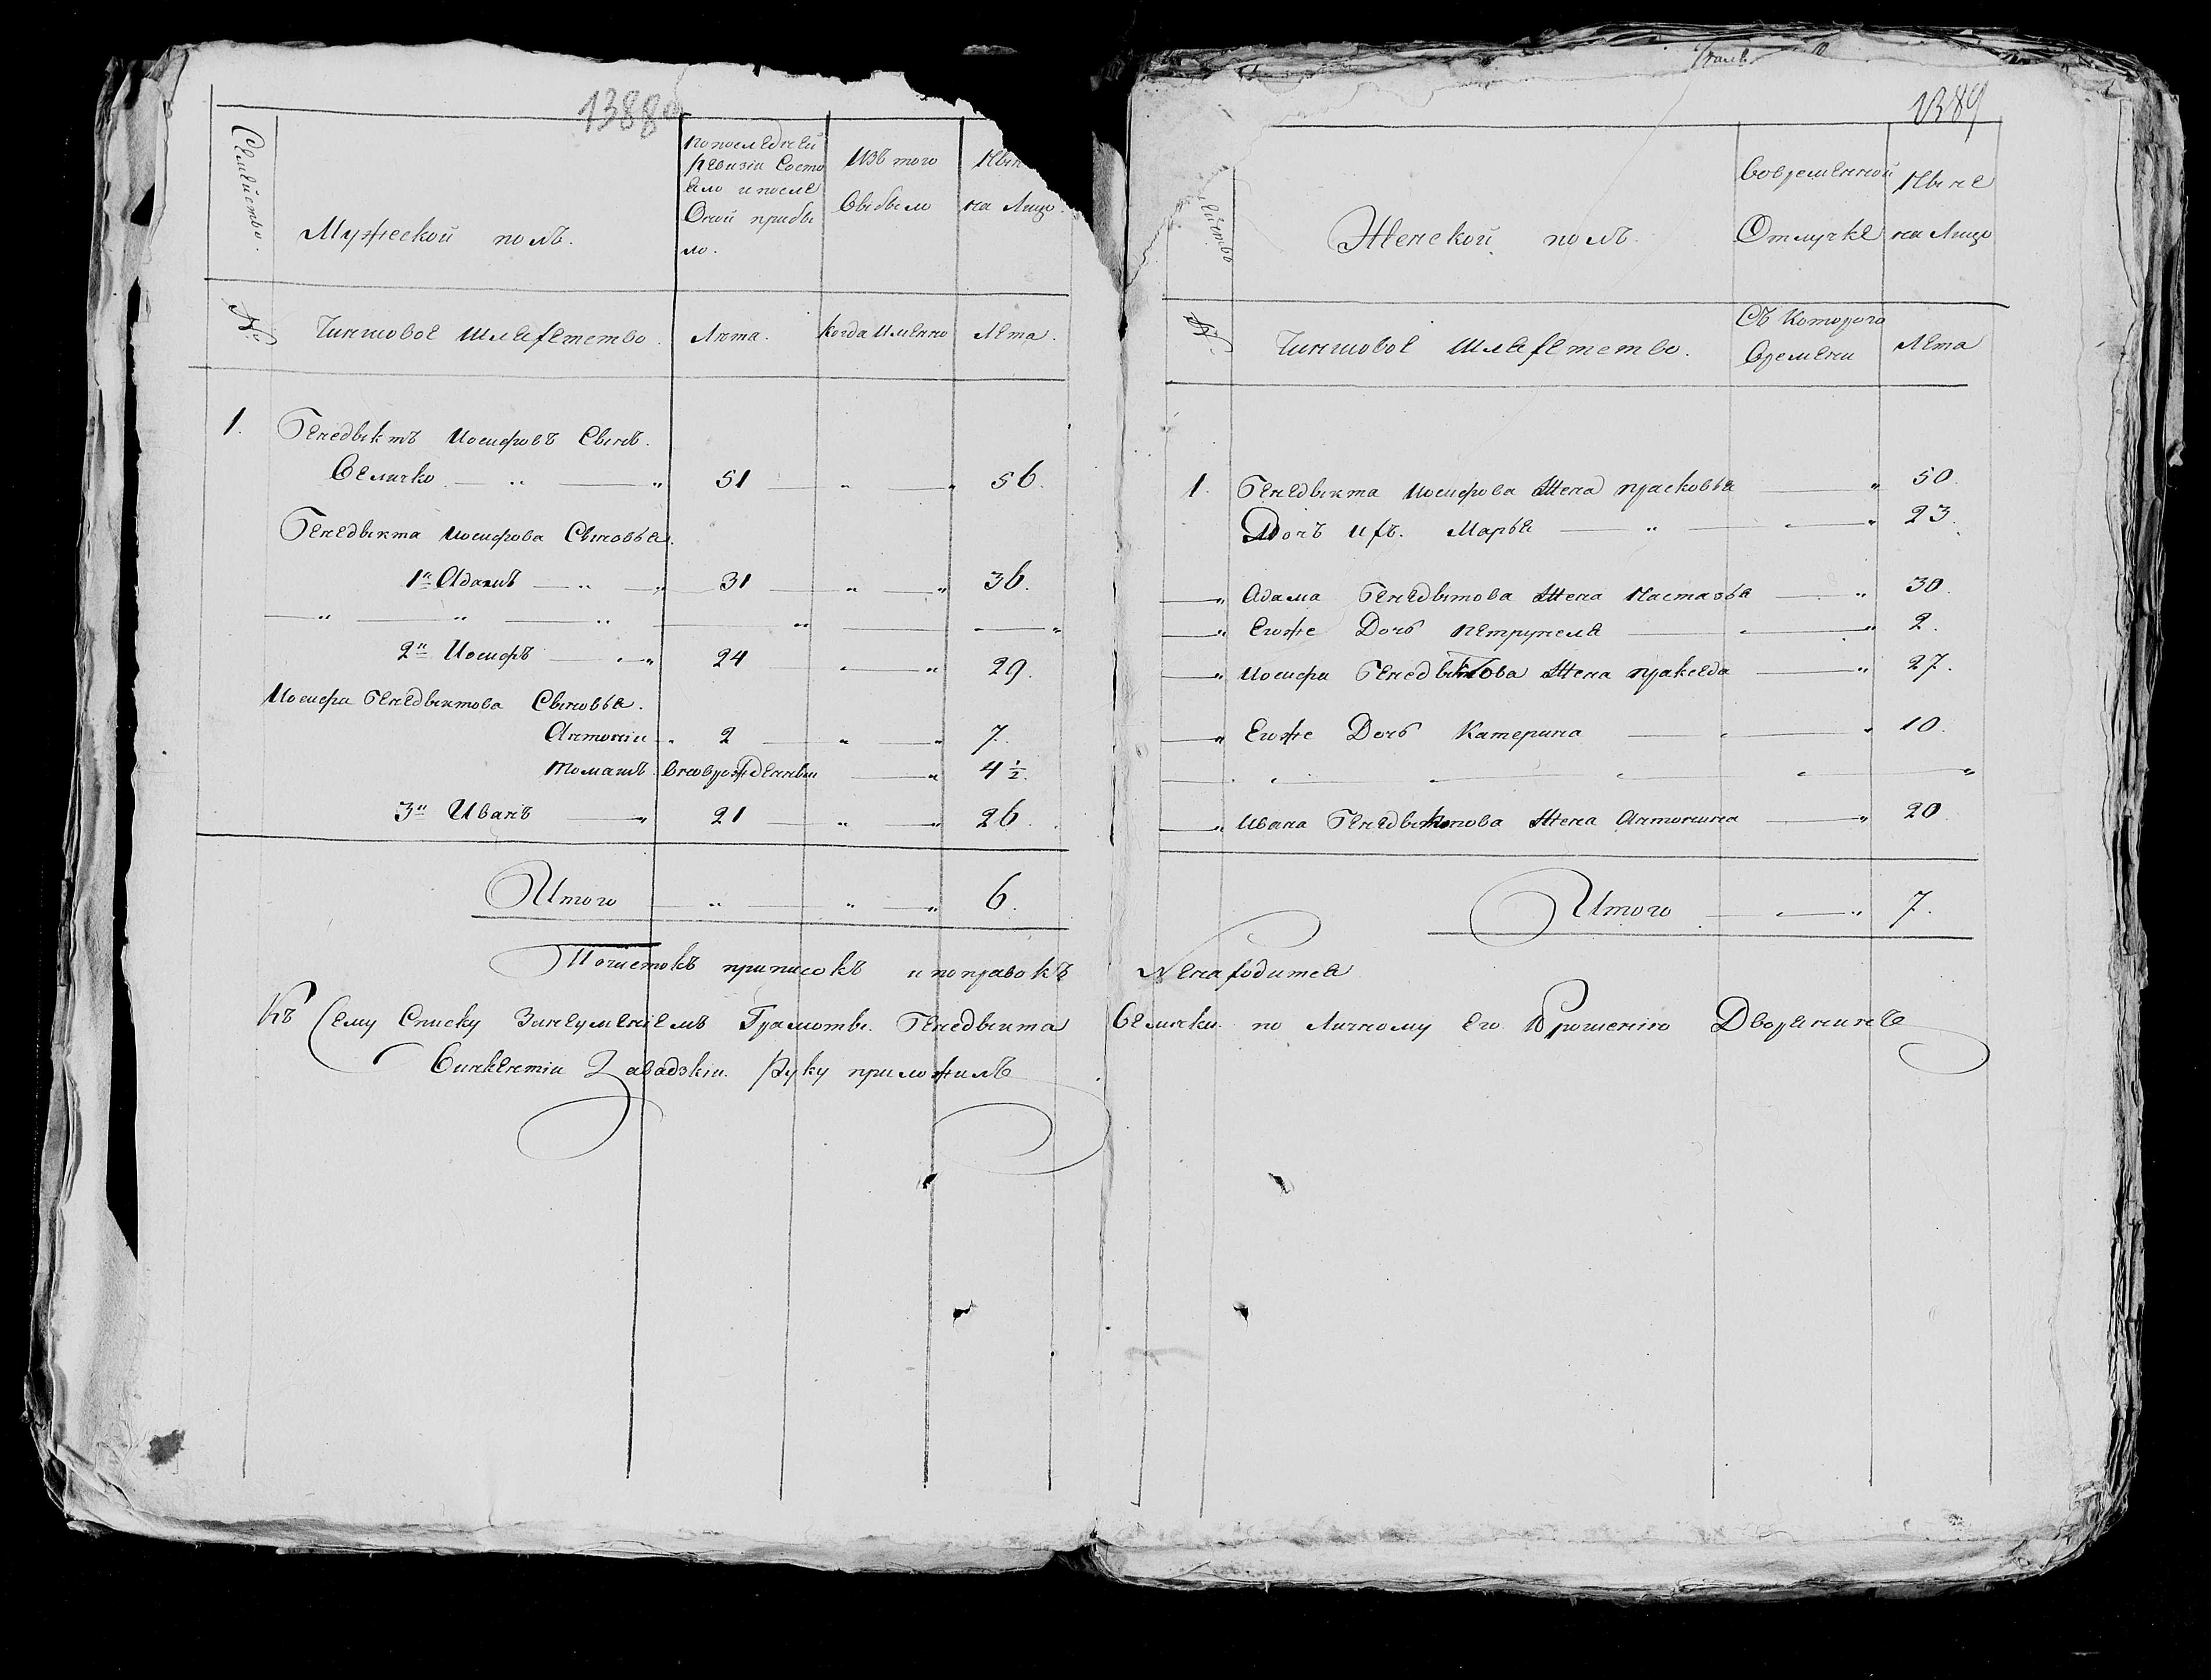 1388
Семейство.
Мужеской полъ.
попоследней
ревизіи Состо
яло ипосле
Оной прибы
ло.
Изъ того
Выбыло
Ныне
на Лицо.
№
Чиншовое Шляхетство.
Лята.
когда имянно
Лета.
1. Бенедыктъ Иосифовъ Сынъ.
Величко 51 56.
Бенедыкта Иосифова Сыновья.
1й Адамъ 31 36.
2й Иосифъ 24 29.
Иосифа Бенедыктова Сыновья.
Антоній 2 7.
Томашъ. вновърожденны 4½.
3й Иванъ 21 26.
Итого 6.
1389
Женской полъ.
Вовременной
Отлучке
Ныне
на Лицо
№
Чиншовое Шляхетство.
Съ Которого
Времени
Лета
1. Бенедыкта Иосифова Жена прасковья 50.
Дочъ ихъ. Марья 23.
Адама Бенедыктова Жена Настазья 30.
Егоже Дочь петрунеля 2.
Иосифа Бенедыктова Жена пракседа 27.
Егоже Дочь Катерина 10.
Ивана Бенедыктова Жена Антонина 20.
Итого 7.
Почистокъ приписокъ ипоправокъ Ненаходитея
Къ Сему Списку Занеуменіемъ Грамоты. Бенедыкта Велички по Личному Его Прошенію Дворянинъ
Винкентіи Завадзкіи. Руку приложилъ